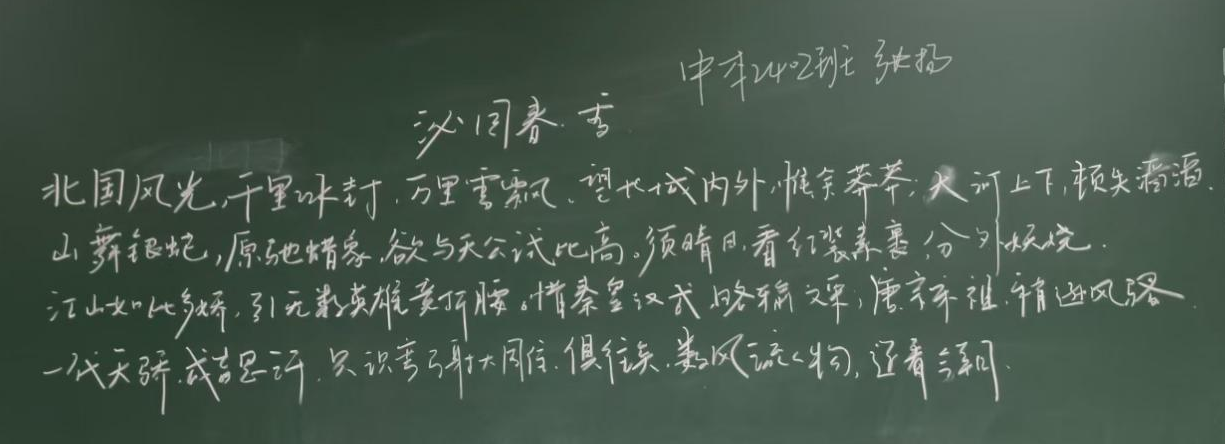 中本2402班 张扬
沁园春·雪
北国风光,千里冰封,万里雪飘。望长城内外,惟余莽莽;大河上下,顿失滔滔。
山舞银蛇,原驰蜡象,欲与天公试比高。须晴日,看红装素裹,分外妖娆。
江山如此多娇,引无数英雄竞折腰。惜秦皇汉武,略输文采,唐宗宋祖,稍逊风骚。
一代天骄,成吉思汗,只识弯弓射大周住,俱往矣,数风流人物,还看今朝。